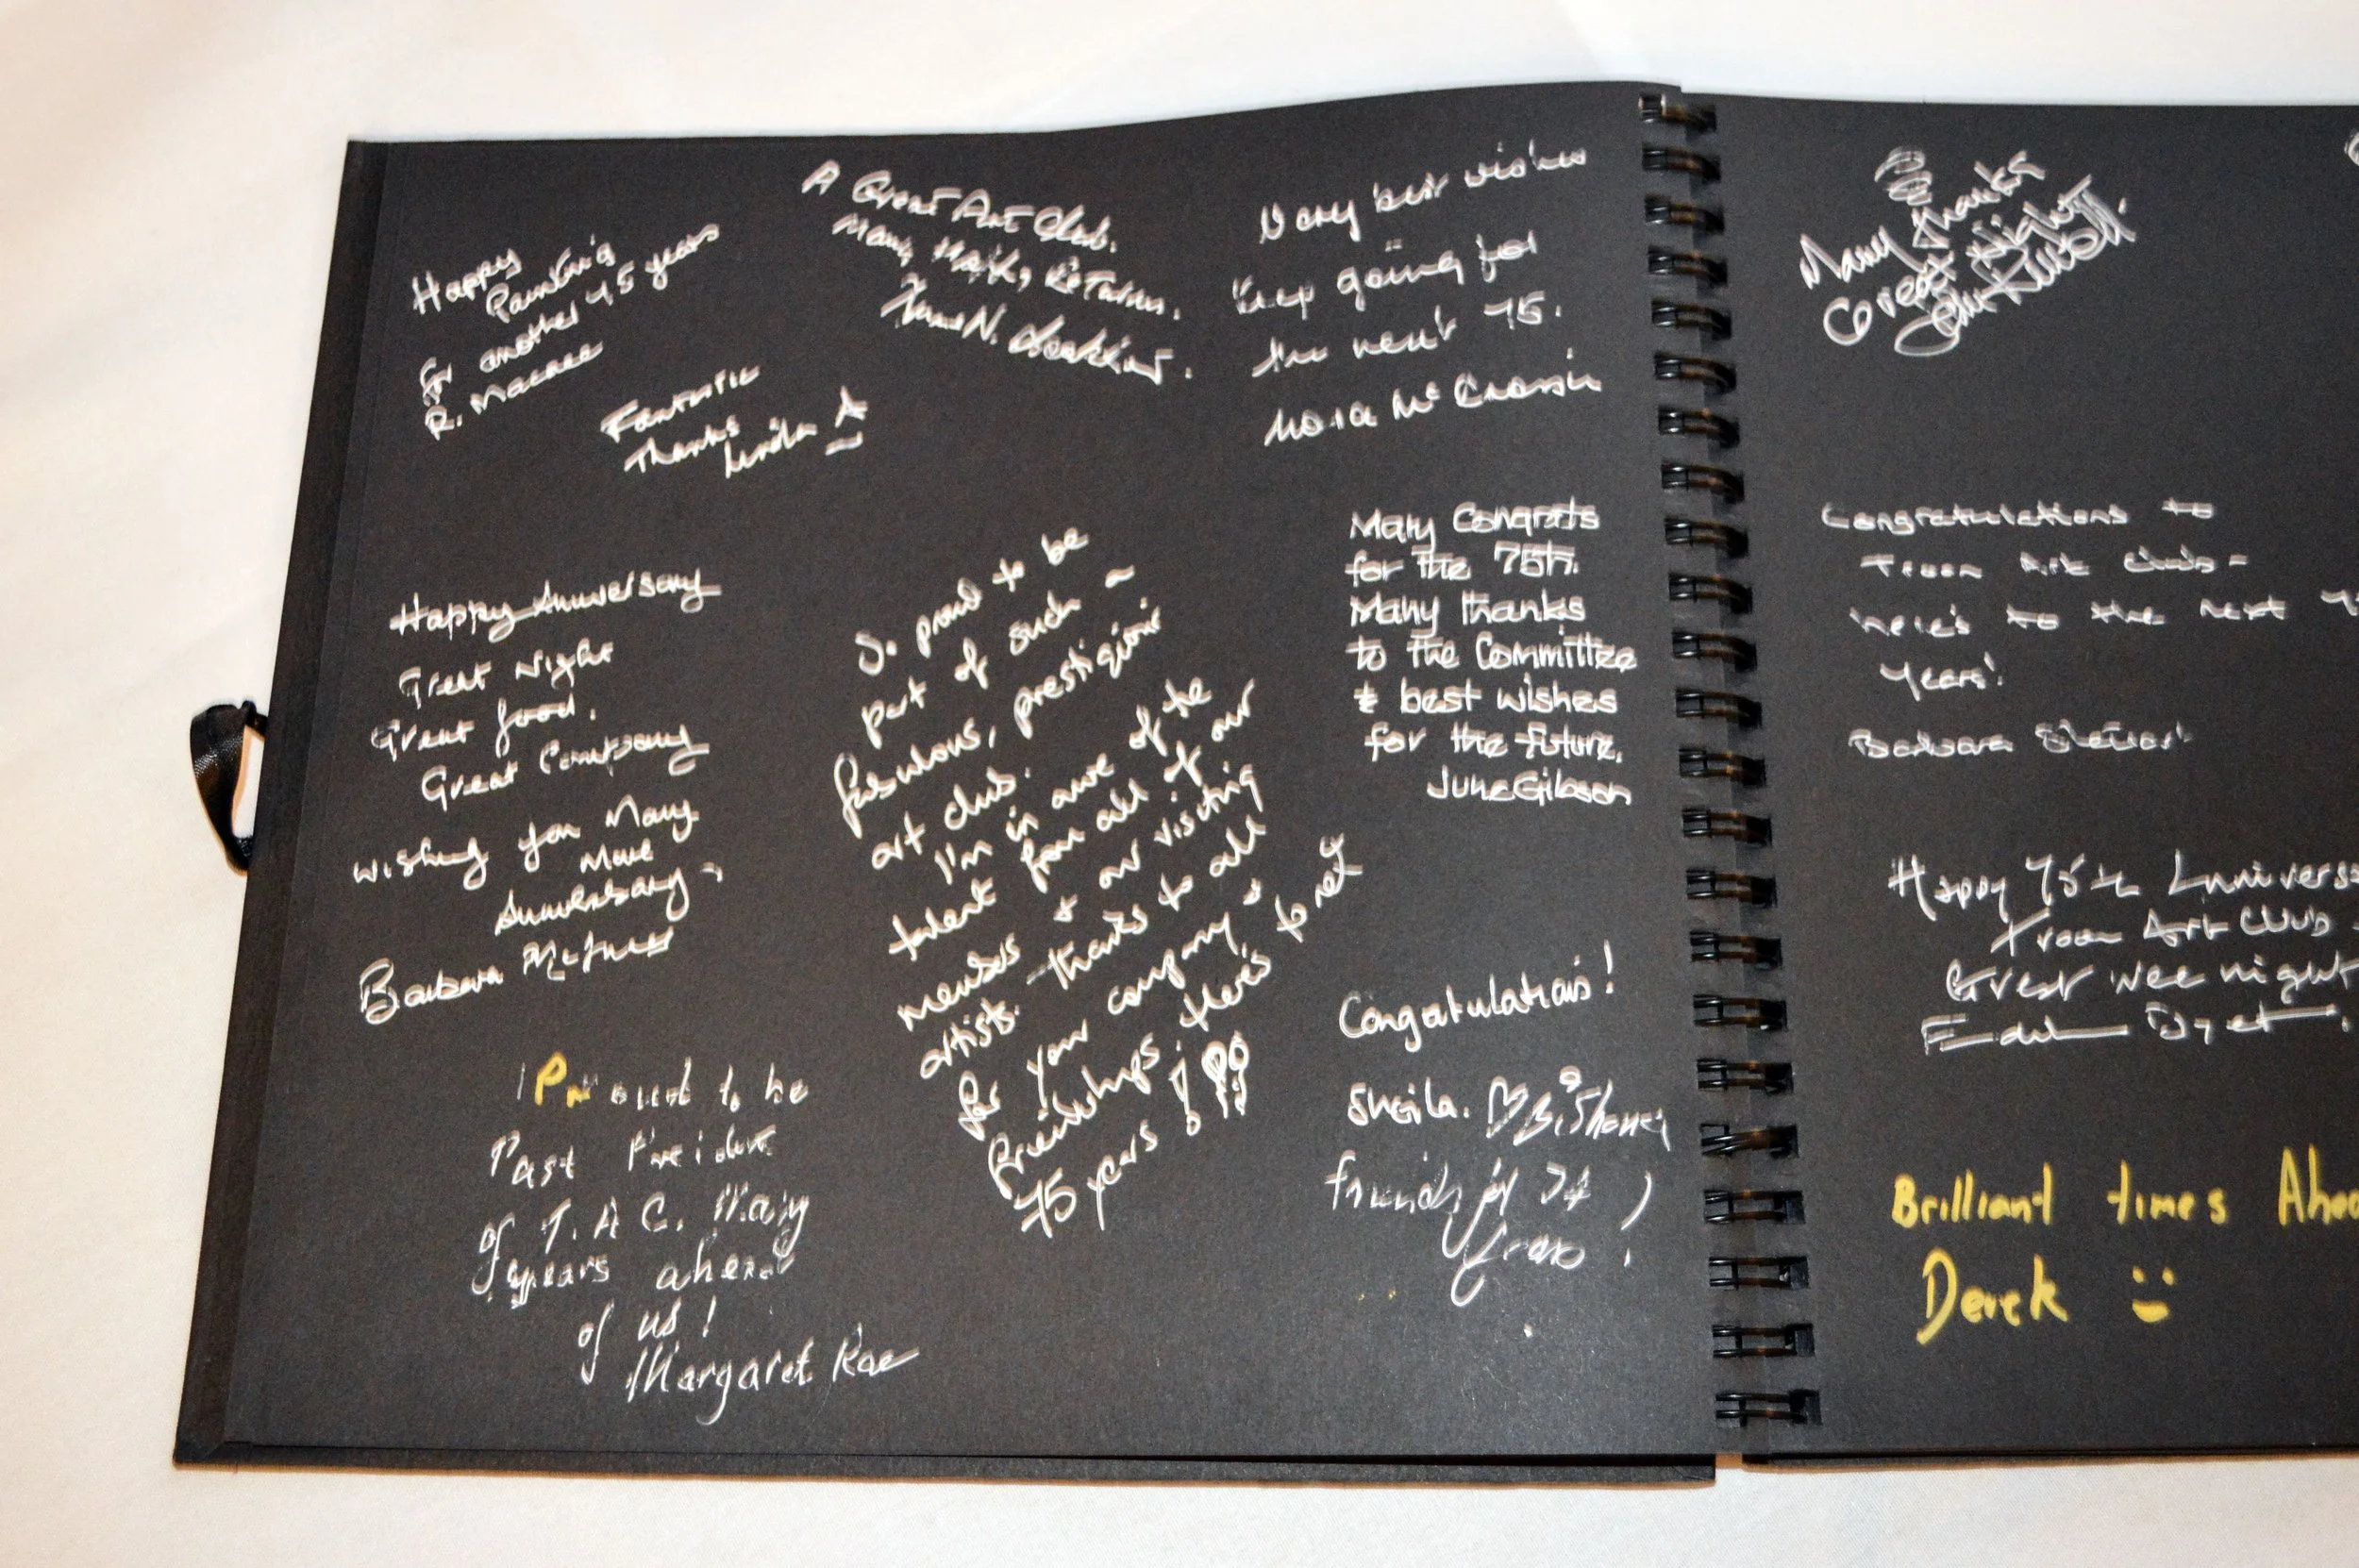 Happy
Painting
for another 75 years
R. Macrae
Fantastic
Thanks
Linda X
A Great Art Club.
Many Happy Returns.
Anne N. Lockhart.
Very best wishes
Keep going for
the next 75.
Nora McCrossin
Happy Anniversary
Great Night
Great food.
Great Company
Wishing you Many
More
Anniversary
Barbara
So proud to be
part of such a
fabulous, prestigious
art club.
I'm in awe of the
talent from all of our
members & our visiting
artists. Thanks to all
for your company &
friendships. Here's to next
75 years!
Many Congrats
for the 75th.
Many thanks
to the Committee
& best wishes
for the future.
June Gibson
Congratulations!
Sheila.
friends of 74
years!
Proud to be
Past President
of T. A C. Many
years ahead
of us!
Margaret Rae
Many thanks
Great night
John
Congratulations to
Troon Art Club -
here's to the next
years!
Barbara Stewart
Happy 75th Annivers
Troon Art Club
Great wee night
Brilliant times Ahea
Derek